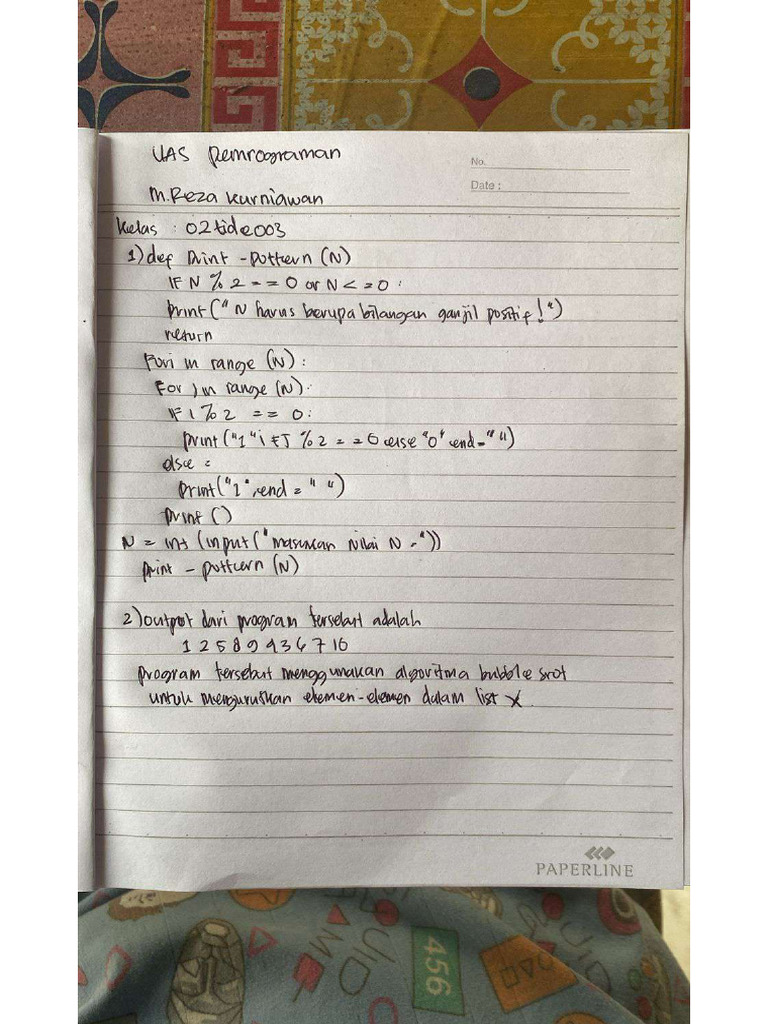 UAS Pemrograman
No.
Date :
M.Reza Kurniawan
Kelas : 02tide003
1) def Print - Pattern (N)
IF N % 2 = = 0 or N < = 0 :
print (" N harus berupa bilangan ganjil positif ! ")
return
For i in range (N) :
For j in range (N) :
IF i % 2 == 0 :
print ("1" if J % 2 = = 0 else "0" end = " ")
else :
print ("1" , end = " ")
print ()
N = int (input (" masukan Nilai N = "))
print - pattern (N)
2) output dari program tersebut adalah
1 2 5 8 9 4 3 6 7 10
program tersebut menggunakan algoritma bubble srot
untuk mengurutkan elemen-elemen dalam list x.
PAPERLINE
456